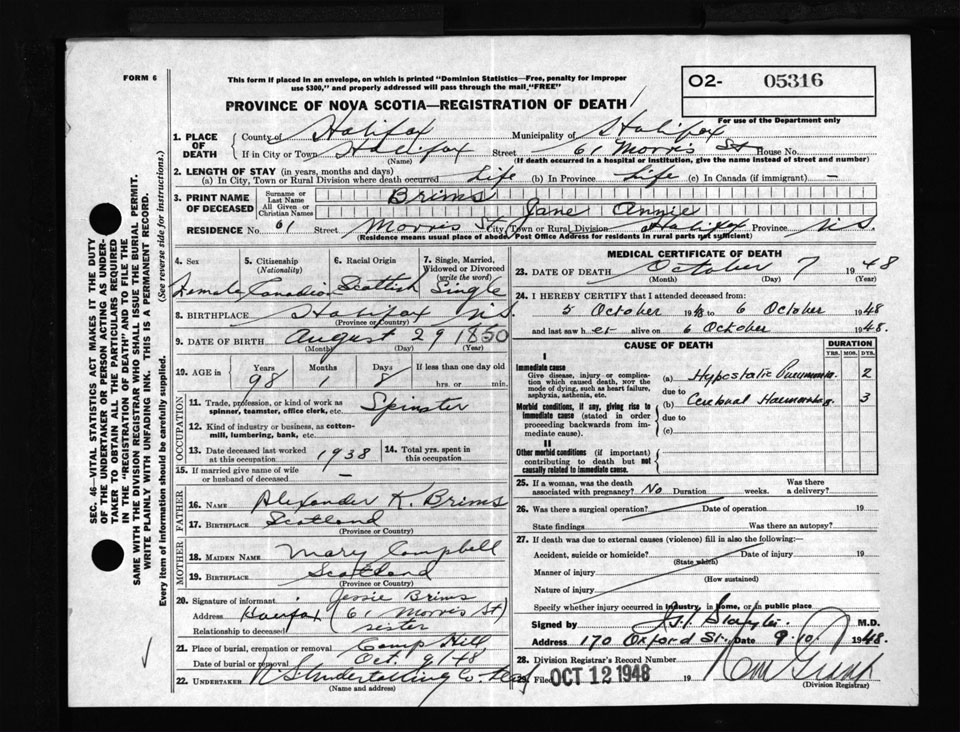 FORM 6
This form if placed in an envelope, on which is printed "Dominion Statistics—Free, penalty for improper
use $300," and properly addressed will pass through the mail, "FREE"
O2- 05316
For use of the Department only
PROVINCE OF NOVA SCOTIA—REGISTRATION OF DEATH
1. PLACE OF DEATH County of Halifax Municipality of Halifax
If in City or Town Halifax Street 61 Morris St House No.
(Name) (If death occurred in a hospital or institution, give the name instead of street and number)
2. LENGTH OF STAY (in years, months and days)
(a) In City, Town or Rural Division where death occurred Life (b) In Province Life (c) In Canada (if immigrant) —
3. PRINT NAME OF DECEASED Surname or Last Name Brims
All Given or Christian Names Jane Annie
RESIDENCE No. 61 Street Morris St City, Town or Rural Division Halifx Province N.S.
(Residence means usual place of abode. Post Office Address for residents in rural parts not sufficient)
4. Sex Female
5. Citizenship (Nationality) Canadian
6. Racial Origin Scottish
7. Single, Married, Widowed or Divorced (write the word) Single
8. BIRTHPLACE Halifax N.S.
(Province or Country)
9. DATE OF BIRTH August 29 1850
(Month) (Day) (Year)
10. AGE in Years 98 Months 1 Days 8 If less than one day old
hrs. or min.
OCCUPATION
11. Trade, profession, or kind of work as
spinner, teamster, office clerk, etc. Spinster
12. Kind of industry or business, as cotton-
mill, lumbering, bank, etc.
13. Date deceased last worked
at this occupation 1938
14. Total yrs. spent in
this occupation
15. If married give name of wife
or husband of deceased —
FATHER
16. NAME Alexander K. Brims
17. BIRTHPLACE Scotland
(Province or Country)
MOTHER
18. MAIDEN NAME Mary Campbell
19. BIRTHPLACE Scotland
(Province or Country)
20. Signature of informant Jessie Brims
Address Halifax (61 Morris St)
Relationship to deceased sister
21. Place of burial, cremation or removal Camp Hill
Date of burial or removal Oct. 9/48
22. UNDERTAKER N S Undertaking Co
(Name and address)
MEDICAL CERTIFICATE OF DEATH
23. DATE OF DEATH October 7 1948
(Month) (Day) (Year)
24. I HEREBY CERTIFY that I attended deceased from
5 October 1948 to 6 October 1948
and last saw her alive on 6 October 1948.
CAUSE OF DEATH
DURATION
YRS. MOS. DYS.
I
Immediate cause
Give disease, injury or complica-
tion which caused death, NOT the
mode of dying, such as heart failure,
asphyxia, asthenia, etc.
(a) Hypostatic Pneumonia 2
due to
Morbid conditions, if any, giving rise to
immediate cause (stated in order
proceeding backwards from im-
mediate cause).
(b) Cerebral Haemorrhage 3
due to
(c)
II
Other morbid conditions (if important)
contributing to death but not
causally related to immediate cause.
25. If a woman, was the death
associated with pregnancy? No Duration weeks. Was there
a delivery?
26. Was there a surgical operation? Date of operation 19
State findings Was there an autopsy?
27. If death was due to external causes (violence) fill in also the following:—
Accident, suicide or homicide? Date of injury 19
(State which)
Manner of injury
(How sustained)
Nature of injury
Specify whether injury occurred in Industry, in home, or in public place
Signed by M.D.
Address 170 Oxford St., Date 9.10. 1948.
28. Division Registrar's Record Number
29. Filed OCT 12 1948 19
(Division Registrar)
SEC. 46—VITAL STATISTICS ACT MAKES IT THE DUTY
OF THE UNDERTAKER OR PERSON ACTING AS UNDER-
TAKER TO OBTAIN ALL THE PARTICULARS REQUIRED
IN THE "REGISTRATION OF DEATH" AND TO FILE THE
SAME WITH THE DIVISION REGISTRAR WHO SHALL ISSUE THE BURIAL PERMIT.
WRITE PLAINLY WITH UNFADING INK. THIS IS A PERMANENT RECORD.
Every item of information should be carefully supplied. (See reverse side for instructions.)